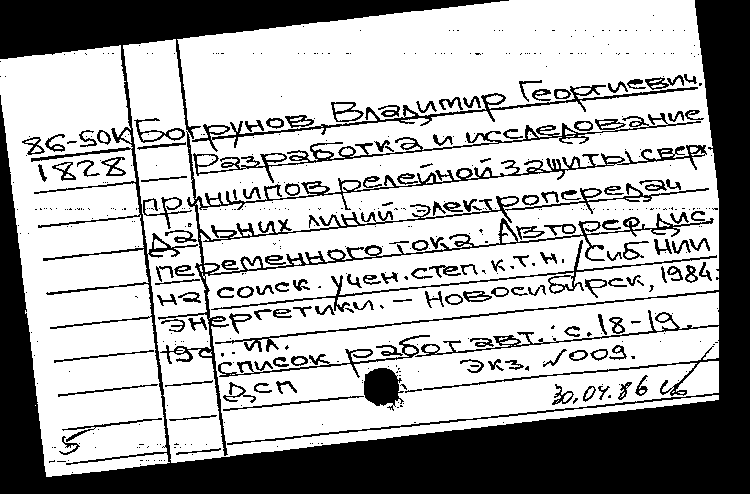 86-50К Богрунов, Владимир Георгиевич.
1828 Разработка и исследование
принципов релейной защиты сверх-
дальних линий электропередач
переменного тока: Автореф. дис.
на соиск. учен. степ. к.т.н. / Сиб. НИИ
энергетики. – Новосибирск, 1984.
19с.: ил.
список работ авт.: с. 18-19.
ДСП экз. №009.
30.04.86
5